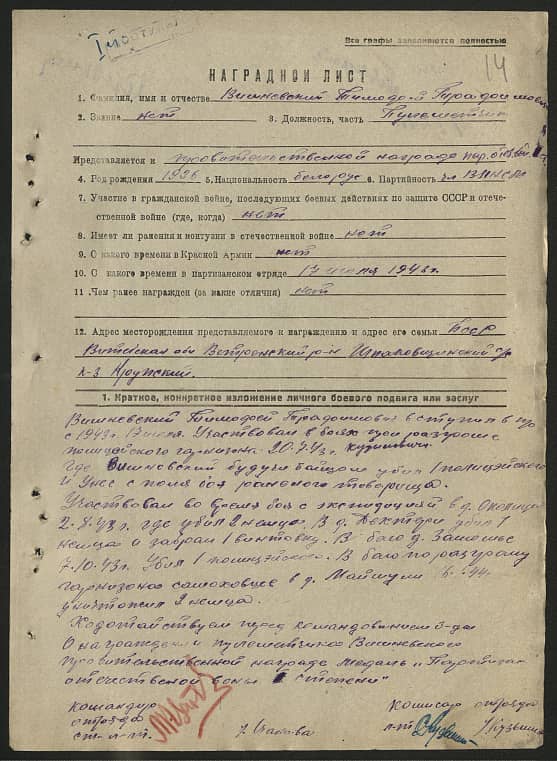 Все графы заполняются полностью
14
НАГРАДНОЙ ЛИСТ
1. Фамилия, имя и отчестве Вишневский Тимофей
2. Звание нет 3. Должность, часть Пулеметчик
Представляется к правительственной награде
4. Род рождения 1926 5. Национальность белорус 6. Партийность чл. ВЛКСМ
7. Участие в гражданской войне, последующих боевых действиях по защите СССР и отече-
ственной войне (где, когда) нет
8. Имеет ли ранения и контузии в отечественной войне нет
9. С какого времени в Красной Армии нет
10. С какого времени в партизанском отряде 17 июня 1943 г.
11. Чем ранее награжден (за какие отличия) нет
12. Адрес месторождения представляемого к награждению и адрес его семьи БССР
Витебская обл Ветринский р-н с/с
к-з
1. Краткое, конкретное изложение личного боевого подвига или заслуг
Вишневский Тимофей вступил в п/о
с 1943 г. 17 июня. Участвовал в боях при разгроме
полицейского гарнизона 20.7.43 г.
Где Вишневский будучи бойцом убил 1 полицейского
и унес с поля боя раненого товарища.
Участвовал во время боя с экспедицией в д.
2.8.43 г. где убил 2 немца. В д. убил 1
немца и забрал 1 винтовку. В бою д.
7.10.43 г. Убил 1 полицейского. В бою по разгрому
гарнизона самоховцев в д.
уничтожил 2 немца.
Ходотайствуем перед командованием
О награждении пулеметчика Вишневского
правительственной награде медаль „Партизан
отечественной воны степени"
командир комисар отряда
отряда л-нт
ст. л-т.